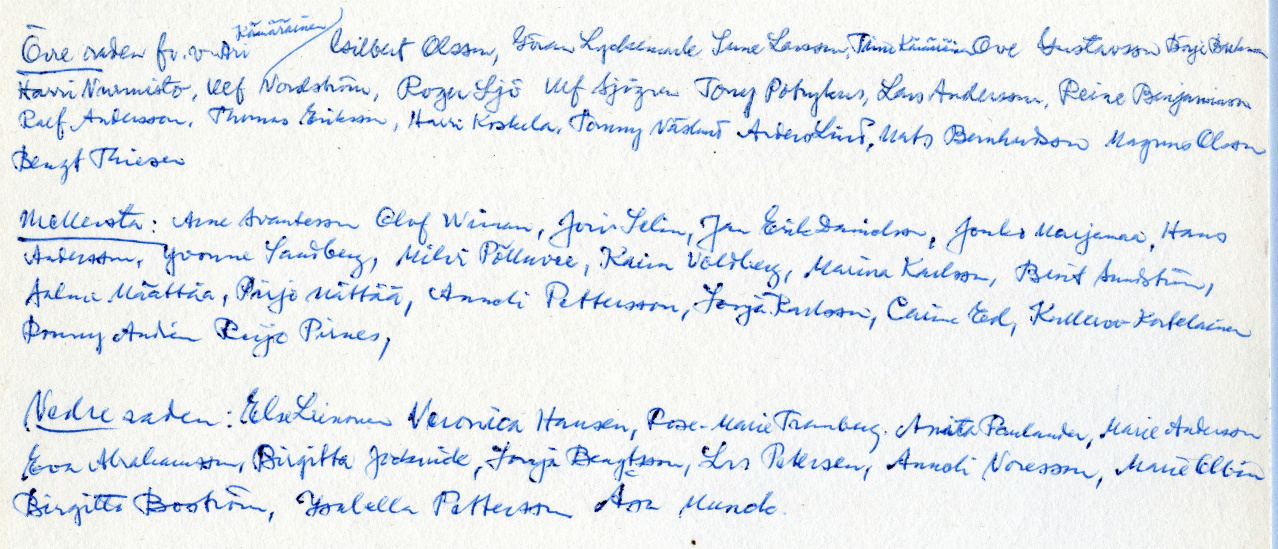 Övre raden fr. v. Ari Kämäräinen Gilbert Olsson, Göran Lyckemark Sune Larsson, Timo Kämäräinen Ove Gustavsson Börje
Harri Nurmisto, Ulf Nordström, Roger Sjö Ulf Sjögren Tony Potrykus, Lars Andersson, Reine Benjaminsson
Ralf Andersson, Thomas Eriksson, Harri Koskela, Tommy Näslund Anders Lind, Mats Bernhardsson Magnus Olsson
Bengt Thiesen
Mellersta: Arne Svantesson Olof Wiman, Jori Selin, Jan Erik Danielsson, Jouko Marjamaa, Hans
Andersson, Yvonne Sandberg, Milvi Põlluvee, Kaira Voldberg, Marina Karlsson, Berit Sundström,
Määttää, Pirjo Mättää, Anneli Pettersson, Sonja Karlsson, Carina Ed, Kullervo Kortelainen
Ronny Andrén Reijo Pirnes,
Nedre raden: Else Leinonen Veronica Hansen, Rose-Marie Tramberg. Anita Paulander, Marie Anderson
Eva Abrahamsson, Birgitta Sonja Bengtsson, Lis Petersen, Anneli Noresson, Marie Elbin
Birgitta Boström, Ysabella Pettersson Åsa Munck.